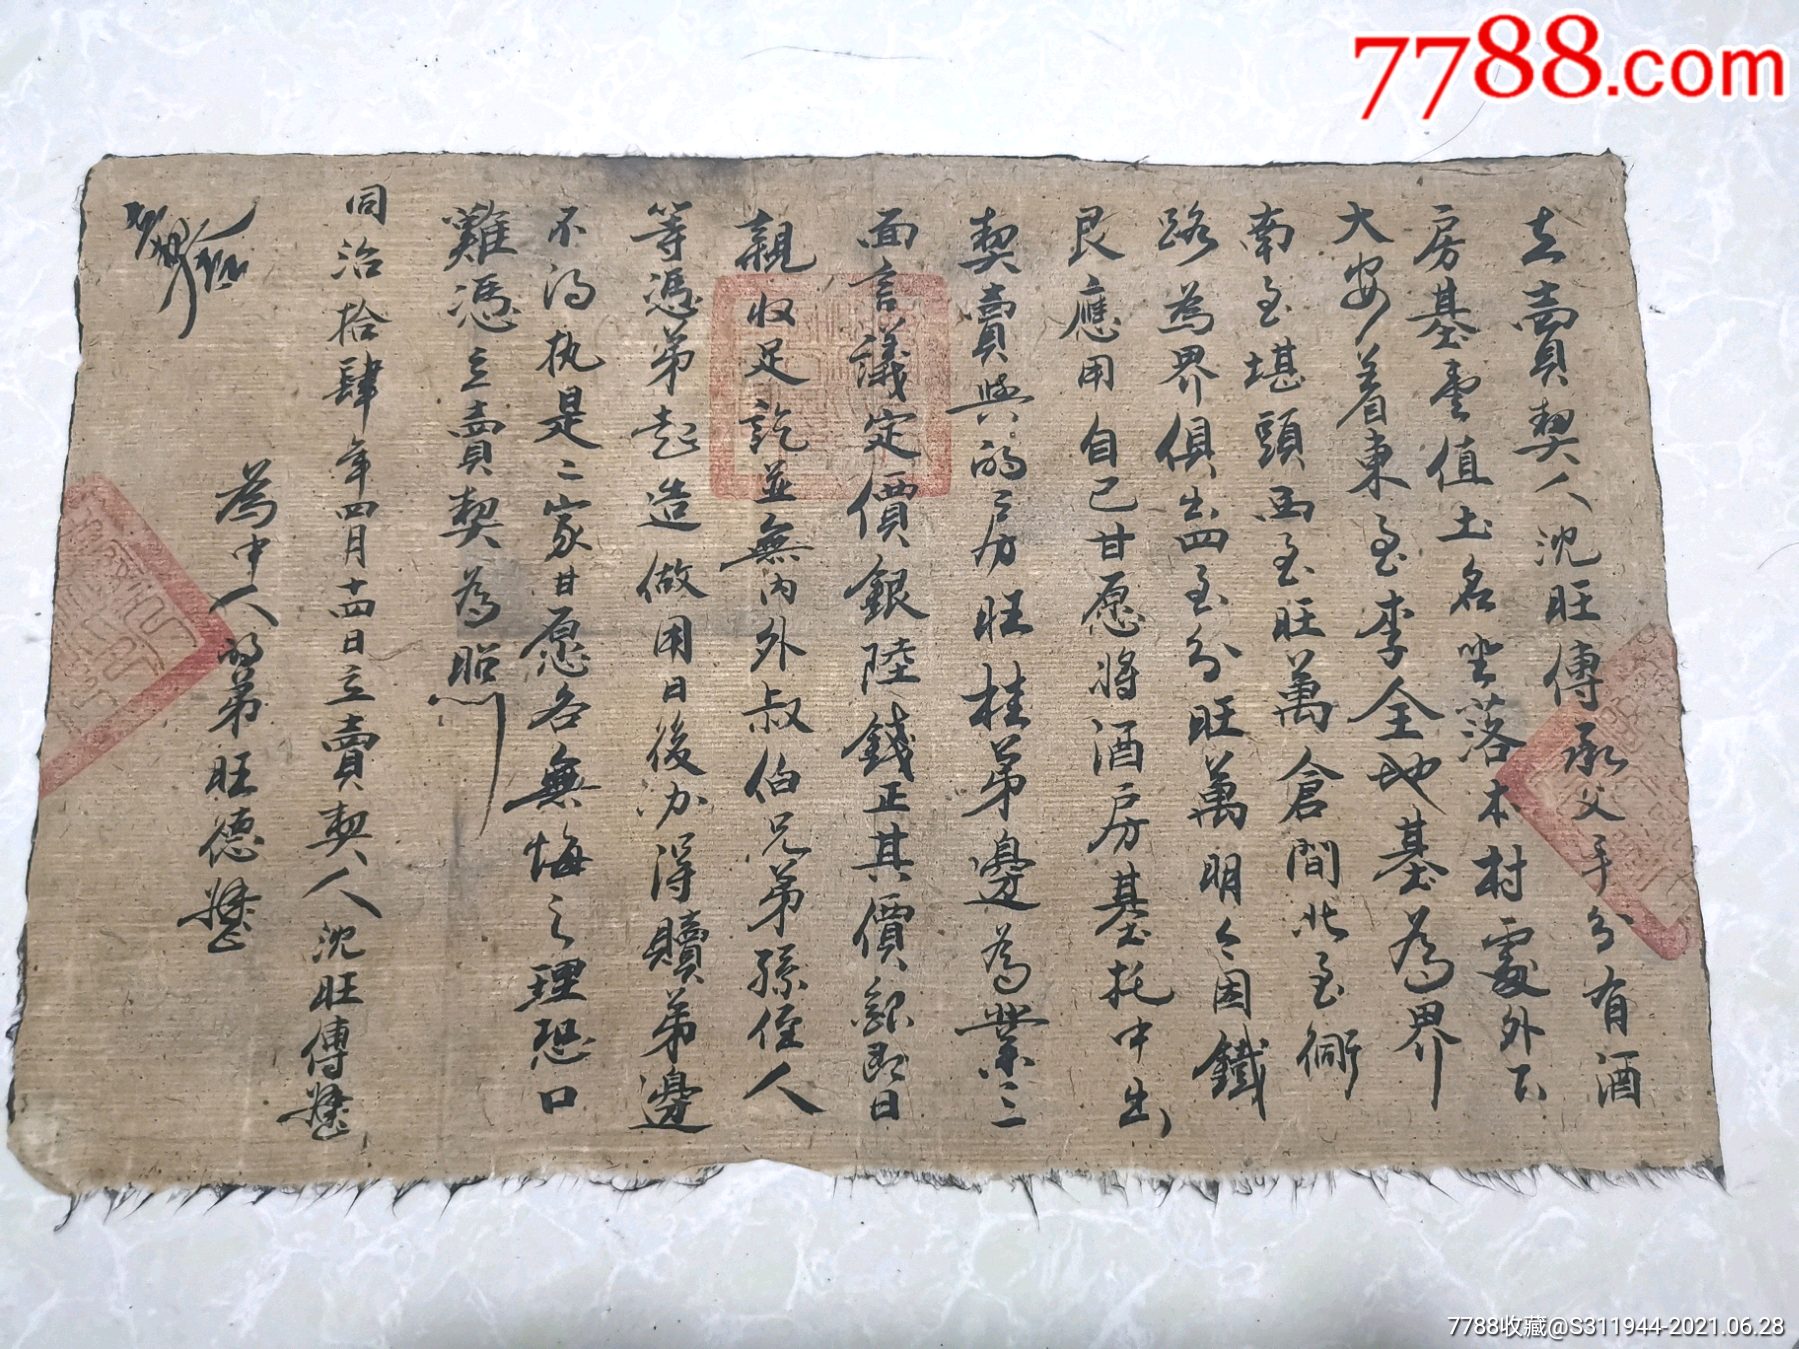 立賣契人沈旺傅承父手分有酒
房基壹值土名坐落本村處外下
大安着東至李全地基為界
南至堪頭西至旺萬倉間北至衕
路為界俱出四至分旺萬明々因鐵
艮應用自己甘愿將酒房基托中出
契賣與的房旺桂弟邊為業三
面言議定價銀陸錢正其價銀即日
親收足訖並無內外叔伯兄弟孫侄人
等憑弟起造做用日後办得贖弟邊
不得执是二家甘愿各無悔之理恐口
難憑立賣契為照
同治拾肆年四月十四日立賣契人沈旺傅
為中人的弟旺德
7788.com
7788收藏@S311944-2021.06.28